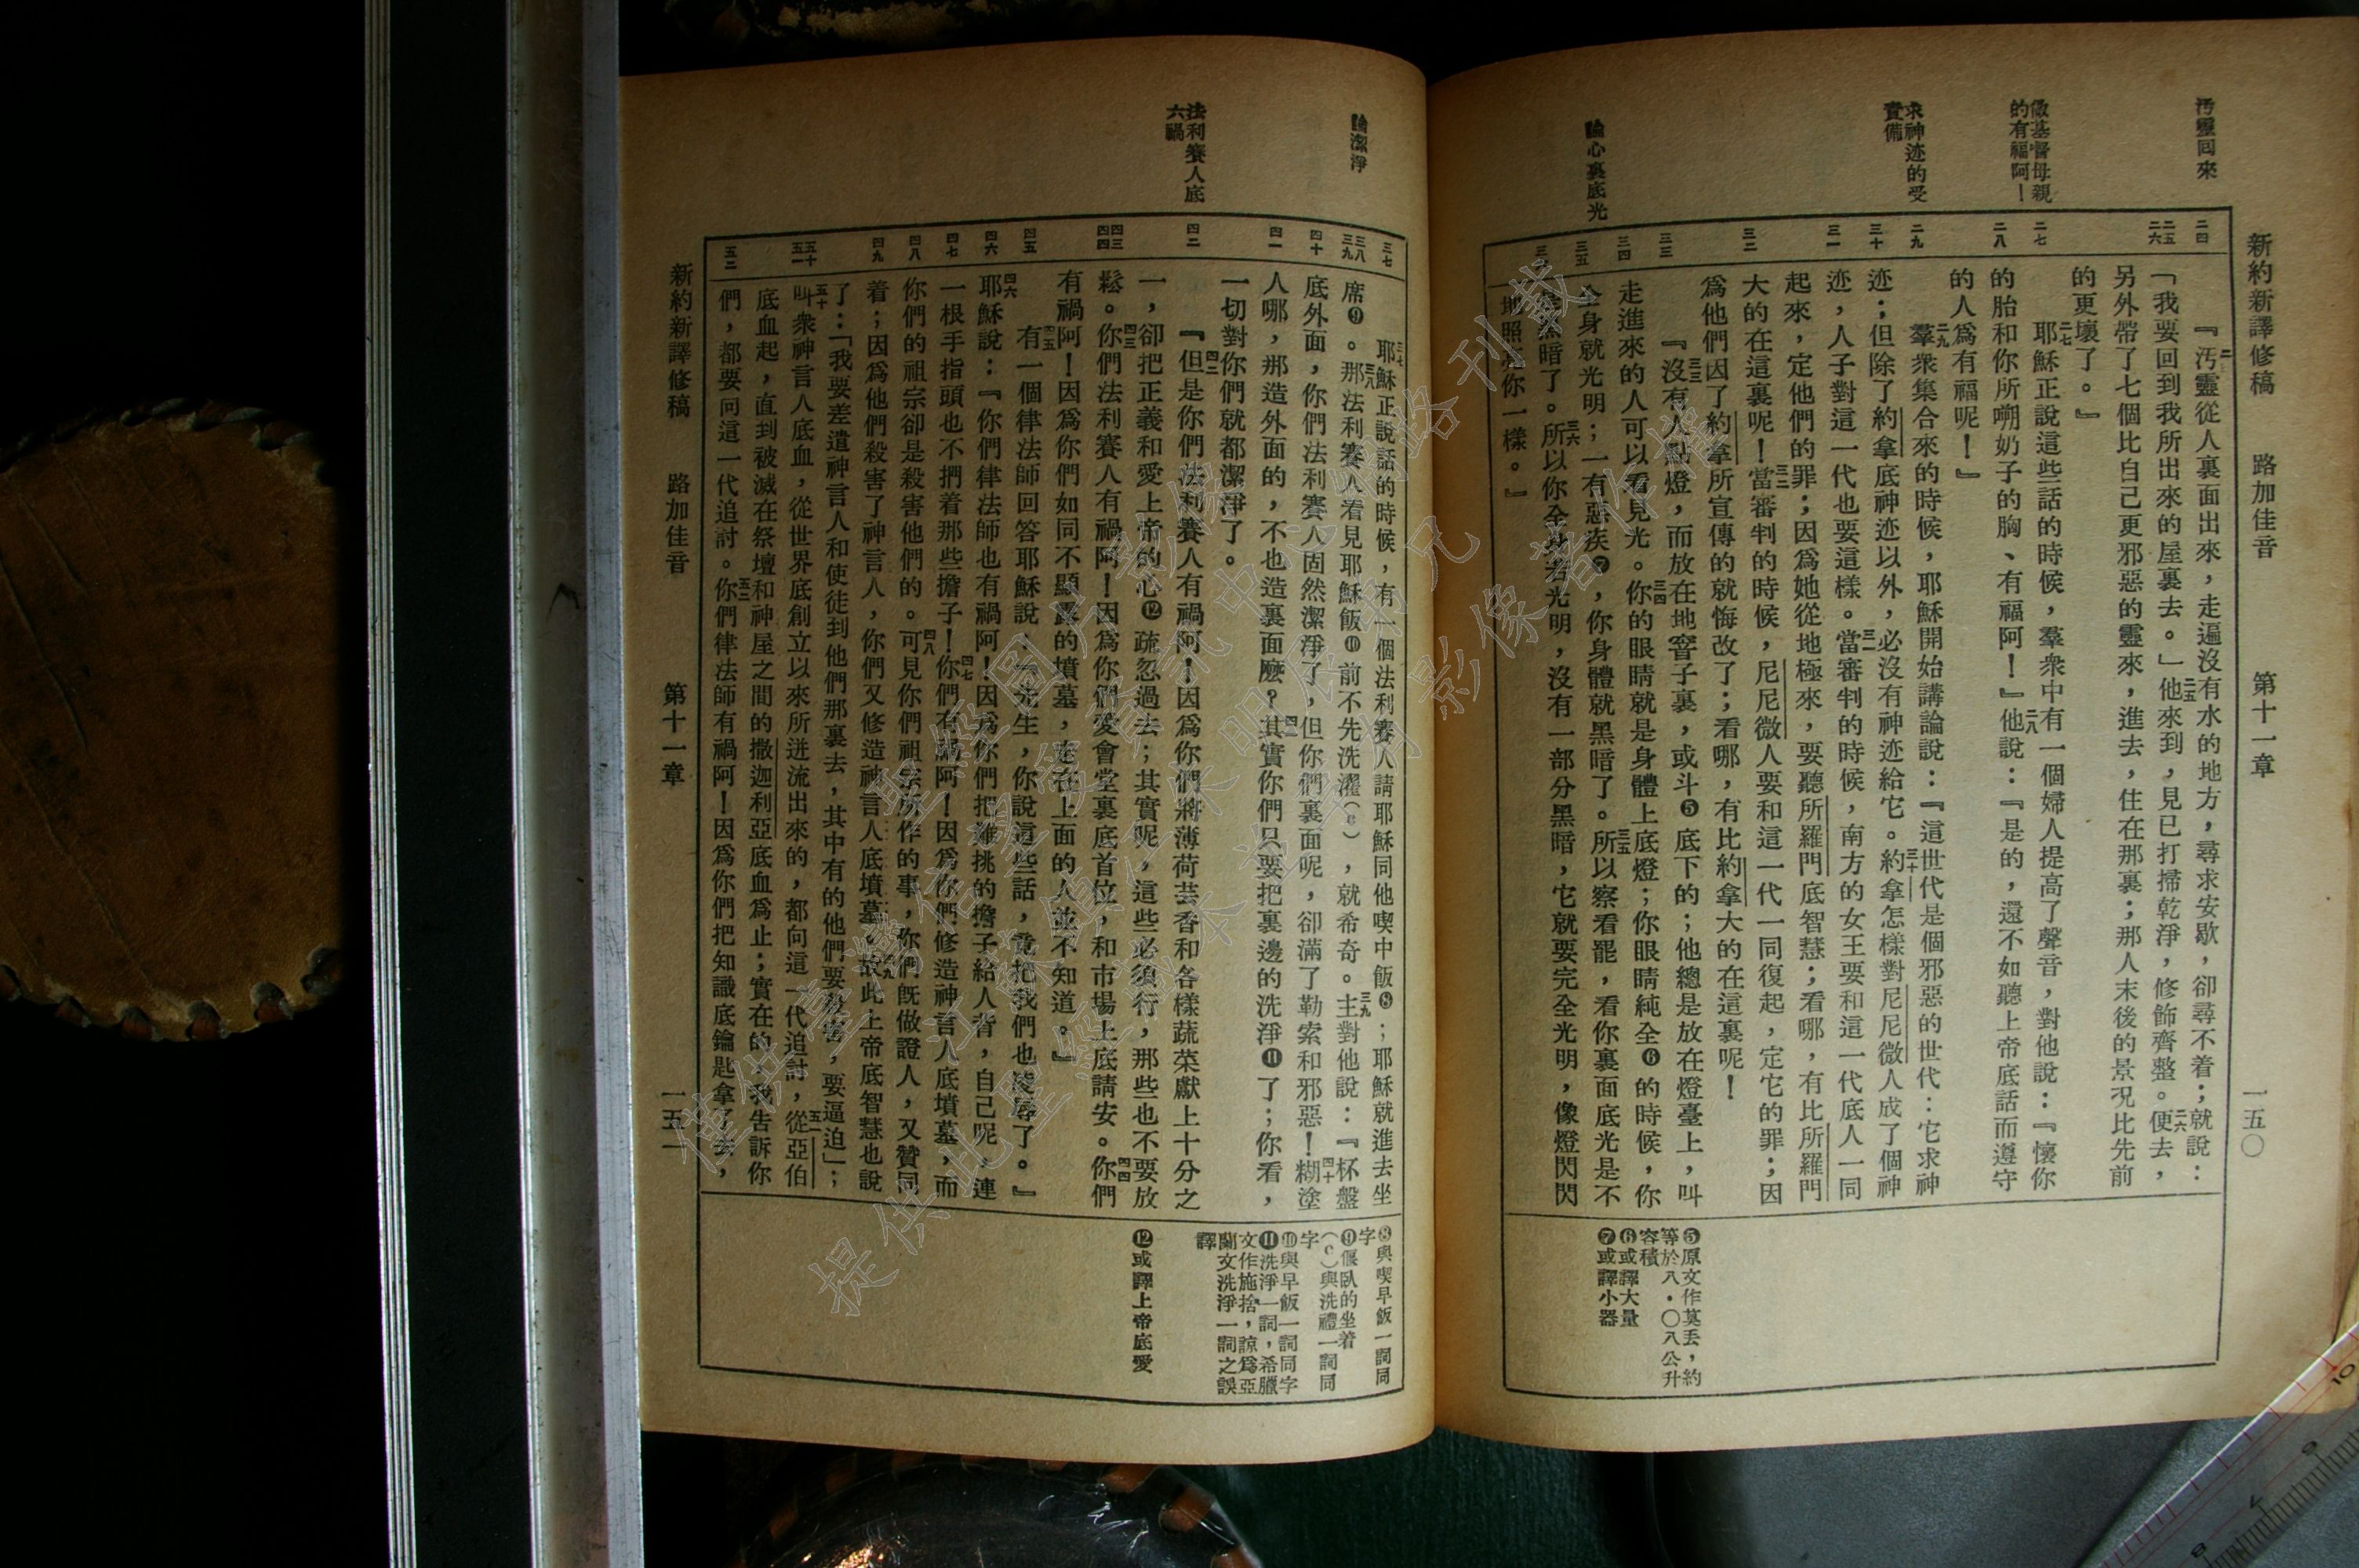 新約新譯修稿　路加佳音　第十一章　一五〇
汚靈回來
做基督母親
的有福阿！
求神迹的受
責備
論心裏底光
二四
二五
二六
二七
二八
二九
三十
三一
三二
三三
三四
三五
『汚靈從人裏面出來，走遍沒有水的地方，尋求安歇，卻尋不着；就說：
「我要回到我所出來的屋裏去。」二五他來到，見已打掃乾淨，修飾齊整。二六便去，
另外帶了七個比自己更邪惡的靈來，進去，住在那裏；那人末後的景況比先前
的更壞了。』
二七耶穌正說這些話的時候，羣衆中有一個婦人提高了聲音，對他說：『懷你
的胎和你所嗍奶子的胸、有福阿！』二八他說：『是的，還不如聽上帝底話而遵守
的人爲有福呢！』
二九羣衆集合來的時候，耶穌開始講論說：『這世代是個邪惡的世代：它求神
迹；但除了約拿底神迹以外，必沒有神迹給它。三十約拿怎樣對尼尼微人成了個神
迹，人子對這一代也要這樣。三一當審判的時候，南方的女王要和這一代底人一同
起來，定他們的罪；因爲她從地極來，要聽所羅門底智慧；看哪，有比所羅門
大的在這裏呢！三二當審判的時候，尼尼微人要和這一代一同復起，定它的罪；因
爲他們因了約拿所宣傳的就悔改了；看哪，有比約拿大的在這裏呢！
『三三沒有人點燈，而放在地窖子裏，或斗❺底下的；他總是放在燈臺上，叫
走進來的人可以看見光。三四你的眼睛就是身體上底燈；你眼睛純全❻的時候，你
全身就光明；一有惡疾❼，你身體就黑暗了。三五所以察看罷，看你裏面底光是不
是黑暗了。三六所以你全身若光明，沒有一部分黑暗，它就要完全光明，像燈閃閃
地照着你一樣。』
❺原文作莫丟，約
等於八・〇八公升
容積
❻或譯大量
❼或譯小器
論潔淨
法利賽人底
六禍
三七
三八
三九
四十
四一
四二
四三
四四
四五
四六
四七
四八
四九
五十
五一
五二
三七耶穌正說話的時候，有一個法利賽人請耶穌同他喫中飯❽；耶穌就進去坐
席❾。三八那法利賽人看見耶穌飯❿前不先洗濯（e），就希奇。三九主對他說：『杯盤
底外面，你們法利賽人固然潔淨了，但你們裏面呢，卻滿了勒索和邪惡！四十糊塗
人哪，那造外面的，不也造裏面麼？四一其實你們只要把裏邊的洗淨⓫了；你看，
一切對你們就都潔淨了。
『四二但是你們法利賽人有禍阿！因爲你們將薄荷芸香和各樣蔬菜獻上十分之
一，卻把正義和愛上帝的心⓬疏忽過去；其實呢，這些必須行，那些也不要放
鬆。四三你們法利賽人有禍阿！因爲你們愛會堂裏底首位，和市場上底請安。四四你們
有禍阿！因爲你們如同不顯露的墳墓，走在上面的人並不知道。』
四五有一個律法師回答耶穌說：『先生，你說這些話，竟把我們也淩辱了。』
四六耶穌說：『你們律法師也有禍阿！因爲你們把難挑的擔子給人背，自己呢，連
一根手指頭也不捫着那些擔子！四七你們有禍阿！因爲你們修造神言人底墳墓，而
你們的祖宗卻是殺害他們的。四八可見你們祖宗所作的事，你們旣做證人，又贊同
着；因爲他們殺害了神言人，你們又修造神言人底墳墓。四九故此上帝底智慧也說
了：「我要差遣神言人和使徒到他們那裏去，其中有的他們要殺害，要逼迫」；
五十叫衆神言人底血，從世界底創立以來所迸流出來的，都向這一代追討，五一從亞伯
底血起，直到被滅在祭壇和神屋之間的撒迦利亞底血爲止；實在的，我告訴你
們，都要向這一代追討。五二你們律法師有禍阿！因爲你們把知識底鑰匙拿了去，
❽與喫早飯一詞同
字
❾偃臥的坐着
（e）與洗禮一詞同
字
❿與早飯一詞同字
⓫洗淨一詞，希臘
文作施捨，諒爲亞
蘭文洗淨一詞之誤
譯
⓬或譯上帝底愛
新約新譯修稿　路加佳音　第十一章　一五一
僅供臺灣信望愛資訊中心網路刊載
聖經圖片影像
提供此聖經
影像著作權
10
9
8
7